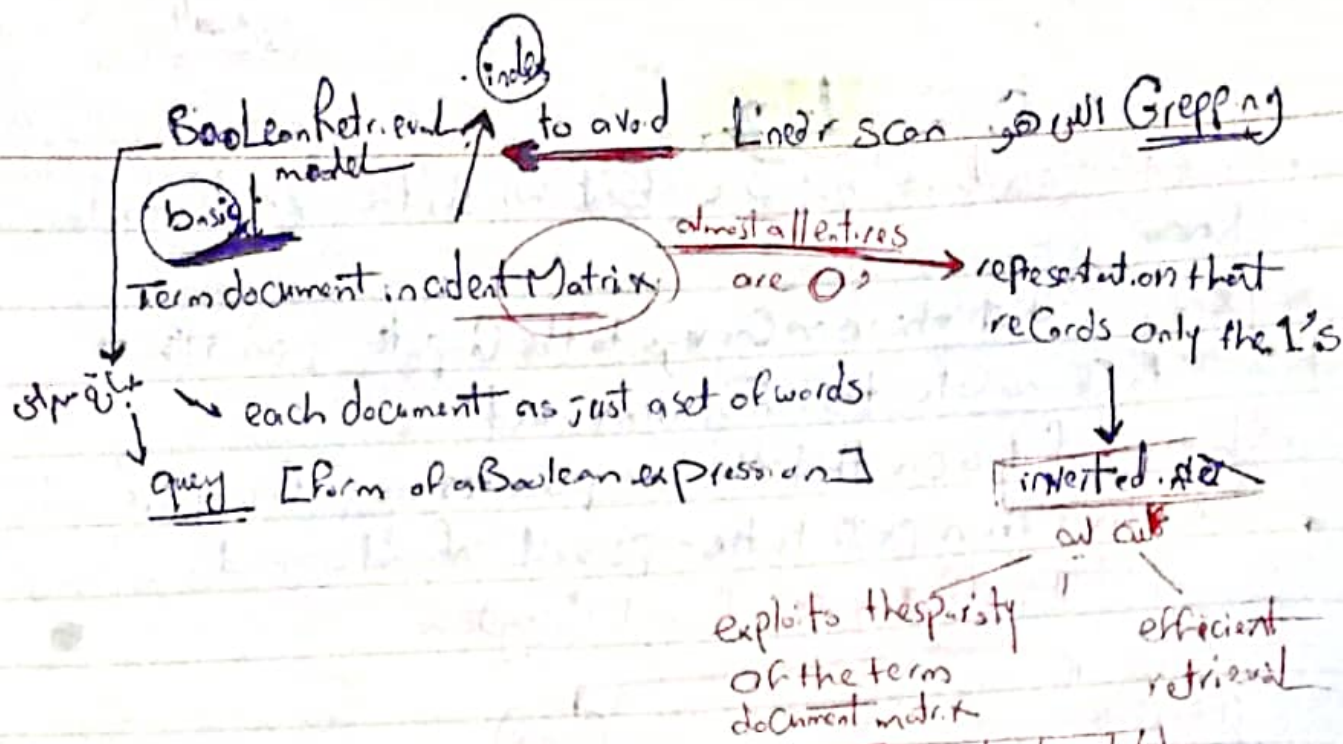 index
Boolean Retrieval to avoid Linear scan اللي هو Grepping
model
basic
Term document incident Matrix
almost all entires
are 0's
representation that
records only the 1's
each document as just a set of words.
query [form of a Boolean expression]
inverted index
exploits the sparisty
of the term
document matrix
efficient
retrieval